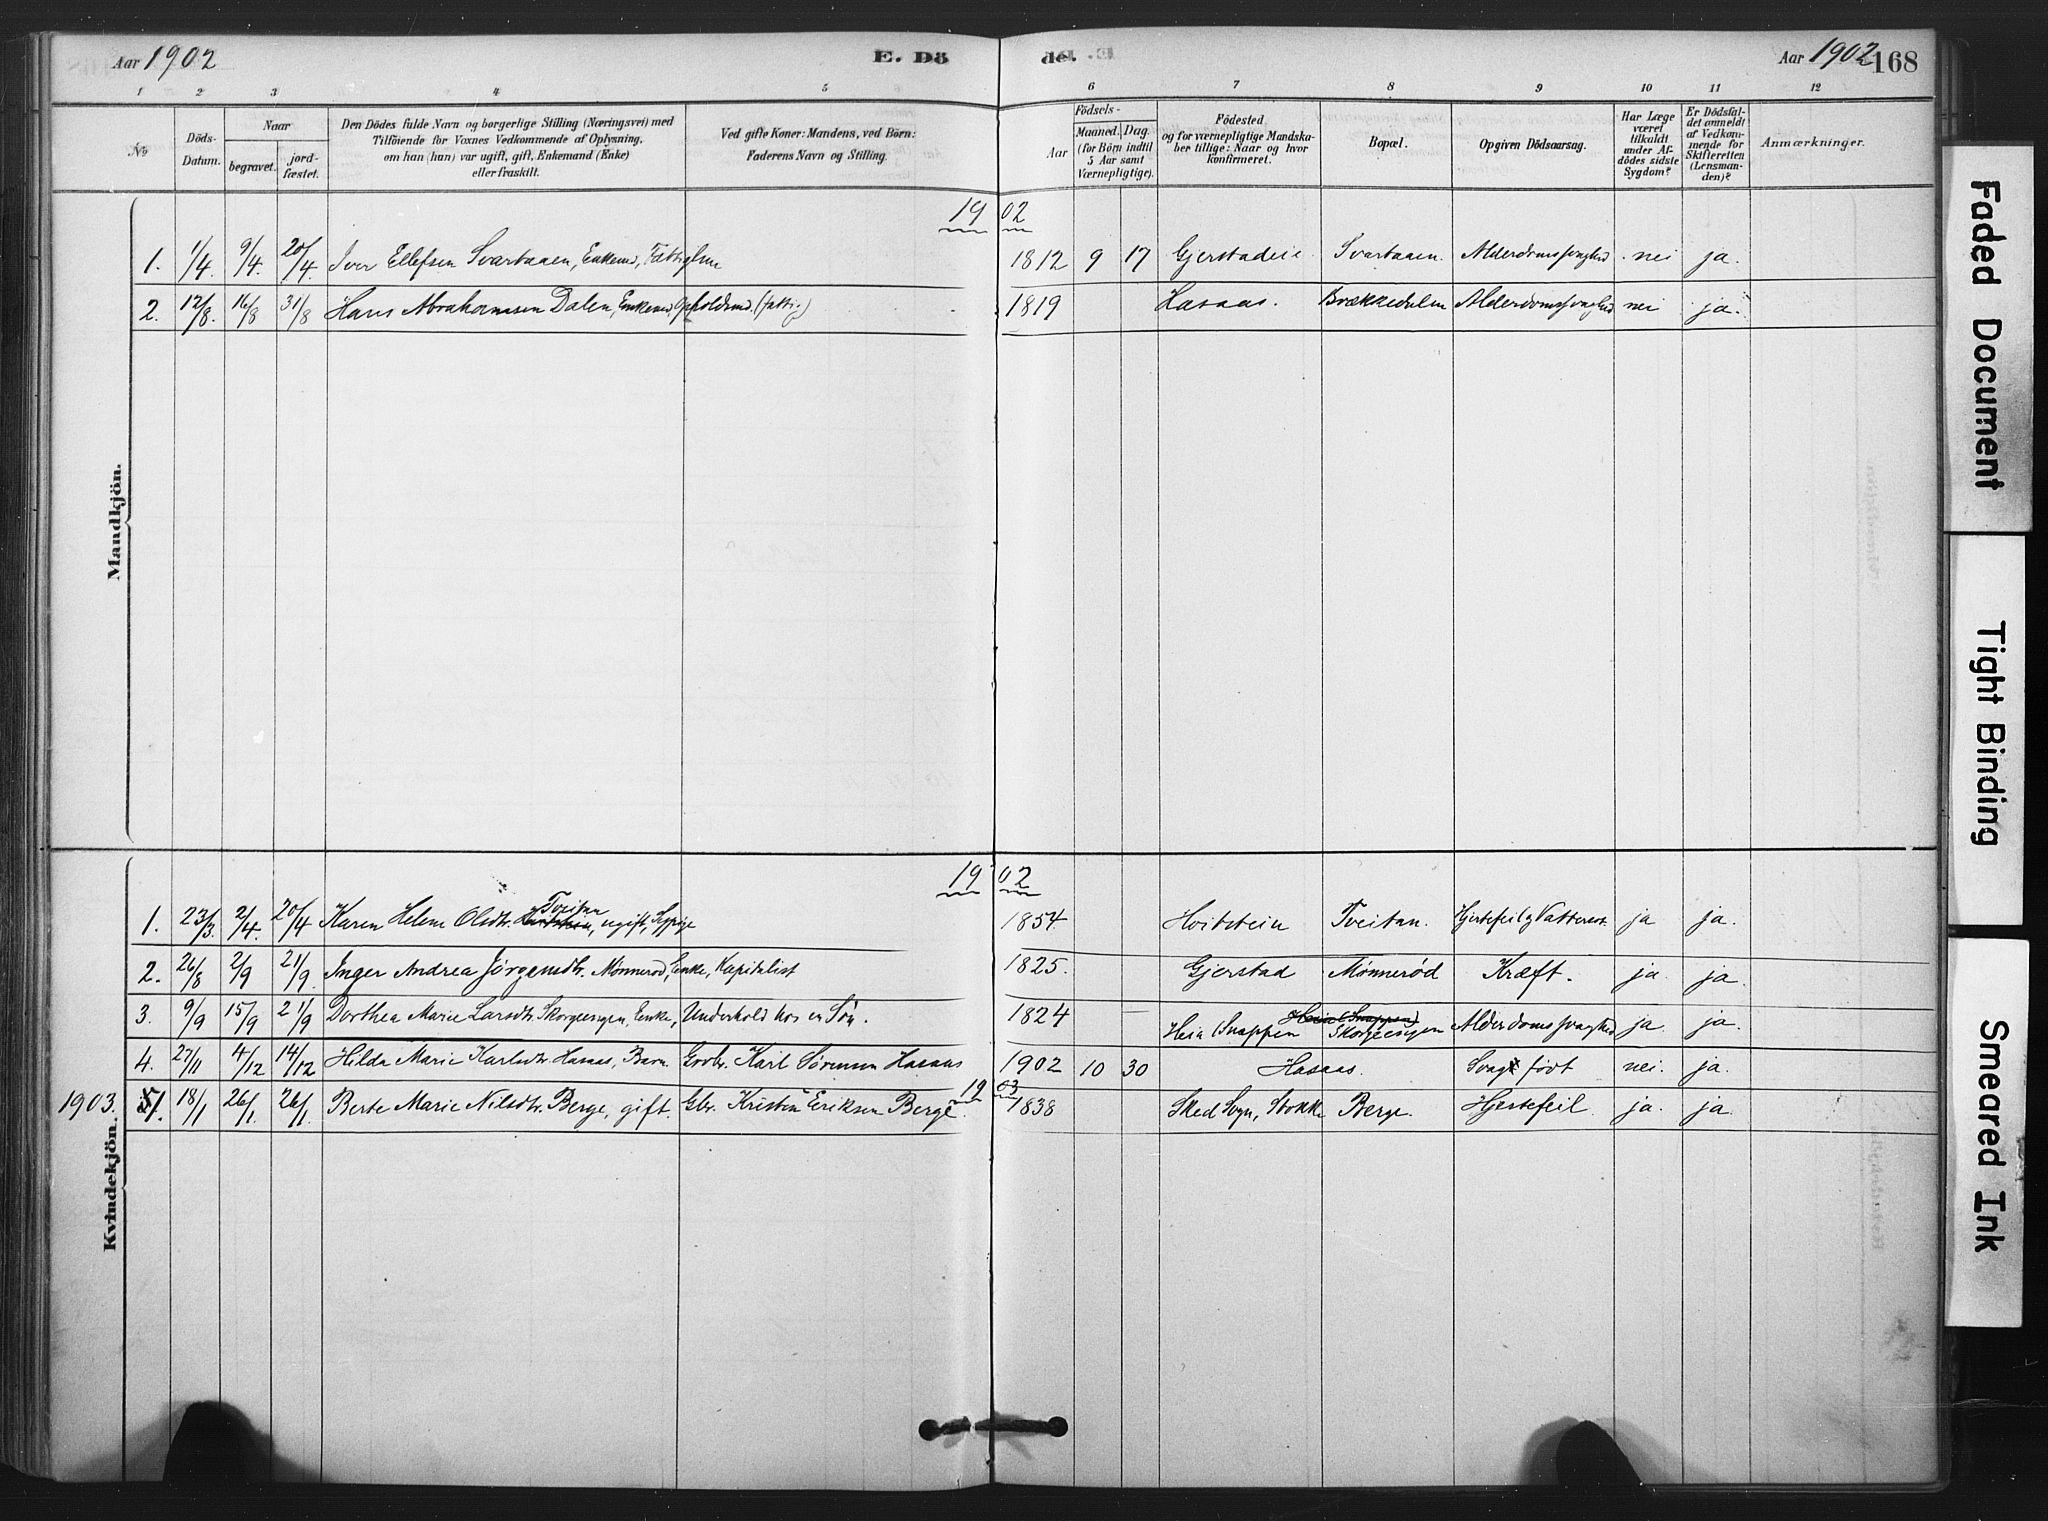 Aar 1902
E. Dö
de.
Aar 1902
168
1 2 3 4 5 6 7 8 9 10 11 12
No
Döds-
Datum.
Naar
begravet.
jord-
fæstet.
Den Dödes fulde Navn og borgerlige Stilling (Næringsvei) med
Tilföiende for Voxnes Vedkommende af Oplysning,
om han (hun) var ugift, gift, Enkemand (Enke)
eller fraskilt.
Ved gifte Koner: Mandens, ved Börn:
Faderens Navn og Stilling.
Födsels-
Aar
Maaned. Dag.
(for Börn indtil
5 Aar samt
Værnepligtige).
Födested
og for værnepligtige Mandska-
ber tillige: Naar og hvor
konfirmeret.
Bopæl.
Opgiven Dödsaarsag.
Har Læge
været
tilkaldt
under Af-
dödes sidste
Sygdom?
Er Dödsfal-
det anmeldt
af Vedkom-
mende for
Skifteretten
(Lensman-
den)?
Anmærkninger.
Mandkjön.
19 02
1. 1/4 9/4. 20/4. Iver Ellefsen Svartaaen, Enkem, 1812 9 17 Gjerstadeie Svartaaen. Alderdomssvaghed nei ja.
2. 12/8. 16/8 31/8 Hans Abrahamsen Dalen, Enkem. Opholdsmd. (fattig) 1819 Hasaas. Brækkedalen Alderdomssvaghed nei ja.
Kvindekjön.
19 02
1. 23/3. 2/4. 20/4 Karen Helene Olsdtr. Tveitan, ugift, Sypige 1854. Hoitstein Tveitan. Hjertefeil og Vattersot. ja ja.
2. 26/8 2/9 21/9. Inger Andrea Jørgensdtr. Mønnerød, Enke, Kapitalist 1825. Gjerstad Mønnerød Kræft. ja. ja.
3. 9/9 15/9 21/9 Dorthea Marie Larsdtr. Skorgeengen, Enke, Underhold hos en Søn. 1824 — Heia (Snappen Heia (Snappen) Skorgeengen Alderdomssvaghed ja. ja.
4. 27/11 4/12 14/12 Hilda Marie Karlsdtr. Hasaas, Barn. Grbr. Karl Sørensen Hasaas 1902 10 30 Hasaas. Svagt født nei. ja.
19 03
1903. 1. 18/1 26/1. 26/1. Berte Marie Nilsdtr. Berge, gift. Gbr. Kristen Eriksen Berge. 1838 Sked Sogn, Stokke Berge. Hjertefeil ja. ja.
Faded Document
Tight Binding
Smeared Ink